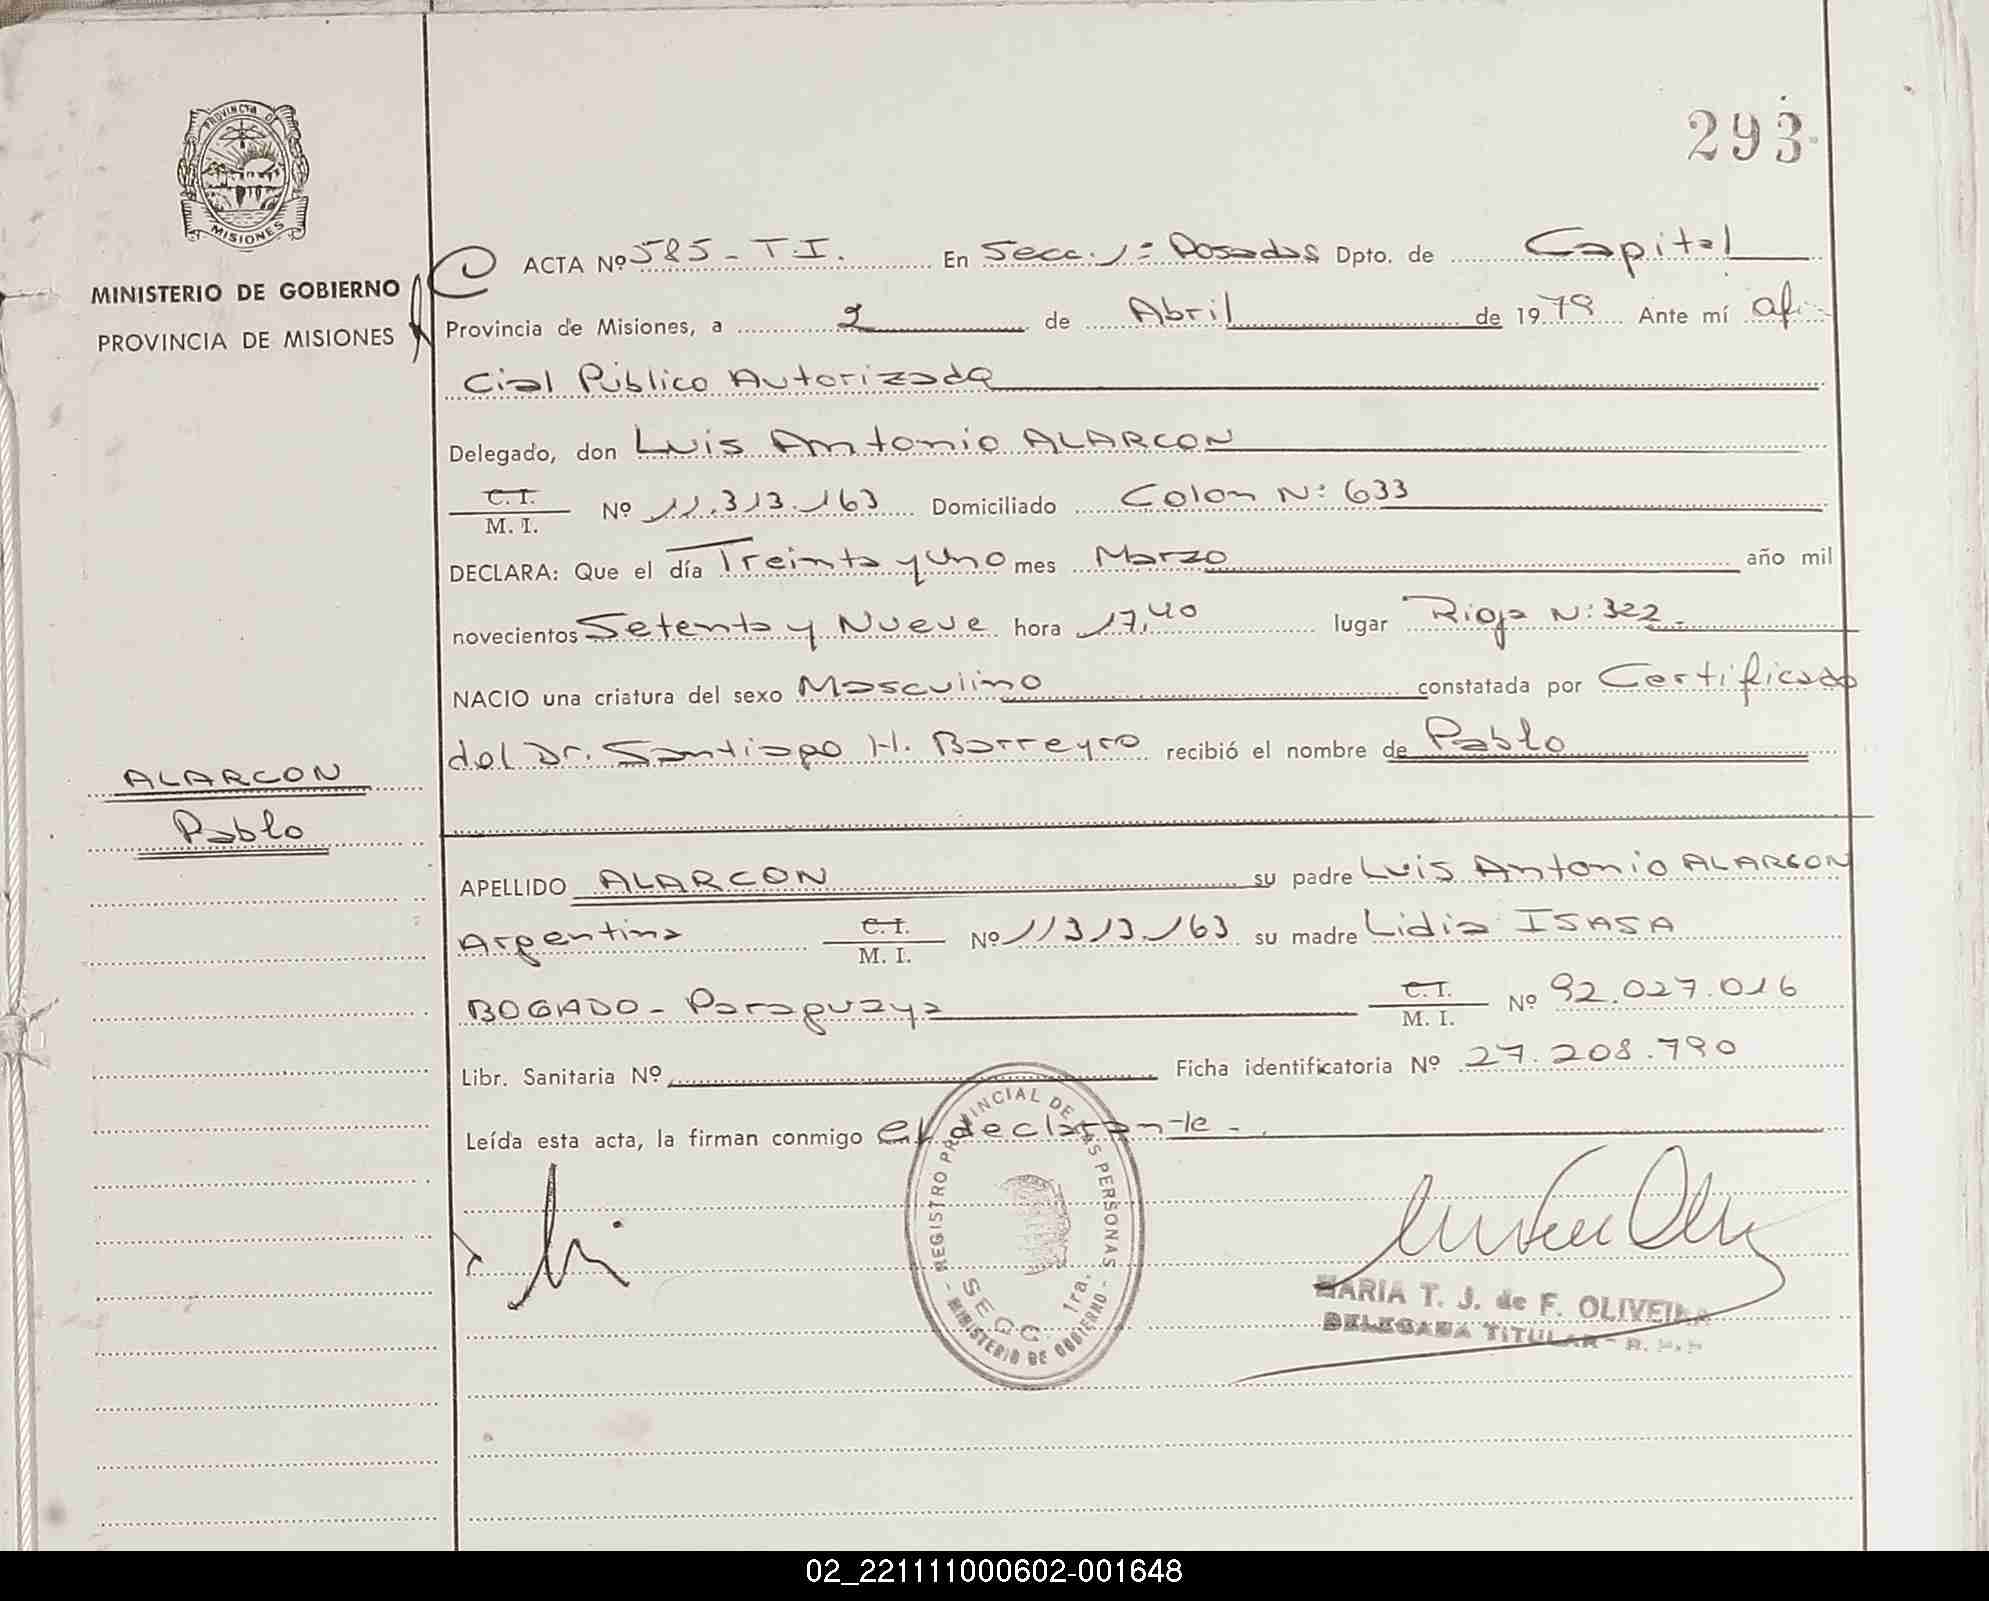 293
PROVINCIA DE
MISIONES
MINISTERIO DE GOBIERNO
PROVINCIA DE MISIONES
ACTA Nº 585 - T.I. En Secc. 1ª Posadas Dpto. de Capital
Provincia de Misiones, a 2 de Abril de 1979 Ante mí ofi-
cial Público Autorizada
Delegado, don Luis Antonio ALARCON
C. I.
M. I. Nº 11.313.163 Domiciliado Colon Nº 633
DECLARA: Que el día Treinta y Uno mes Marzo año mil
novecientos Setenta y Nueve hora 17,40 lugar Rioja Nº 322.
NACIO una criatura del sexo Masculino constatada por Certificado
del Dr. Santiago H. Barreyro recibió el nombre de Pablo
ALARCON
Pablo
APELLIDO ALARCON su padre Luis Antonio ALARCON
Argentina C. I.
M. I. Nº 11313.163 su madre Lidia ISASA
BOGADO - Paraguaya C. I.
M. I. Nº 92.027.016
Libr. Sanitaria Nº Ficha identificatoria Nº 27.208.790
Leída esta acta, la firman conmigo el declarante -.
REGISTRO PROVINCIAL DE LAS PERSONAS
SECC. 1ra.
- MINISTERIO DE GOBIERNO -
MARIA T. J. de F. OLIVEIRA
DELEGADA TITULAR - R. P. P.
02_221111000602-001648